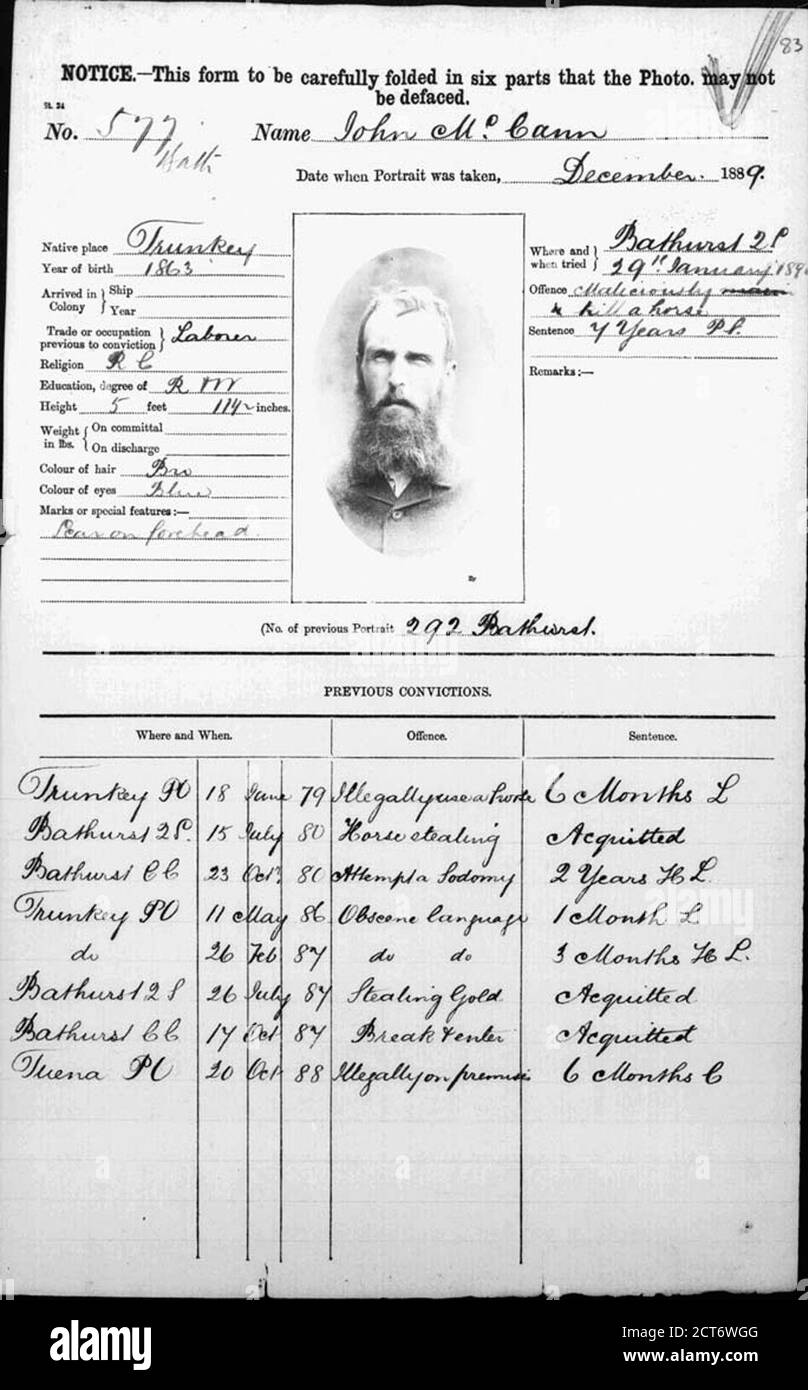 83
NOTICE.—This form to be carefully folded in six parts that the Photo. may not
be defaced.
No. 577 Name John McCann
Bath
Date when Portrait was taken, December. 1889.
Native place Trunkey
Year of birth 1863
Arrived in Colony } Ship
Year
Trade or occupation previous to conviction } Laborer
Religion R C
Education, degree of R W
Height 5 feet 11½ inches.
Weight in lbs. { On committal
On discharge
Colour of hair Bro
Colour of eyes Blue
Marks or special features:—
Scar on forehead.
Where and when tried } Bathurst 2 S
29th January 1890
Offence Maliciously maim
& kill a horse
Sentence 7 Years P S.
Remarks:—
(No. of previous Portrait 292 Bathurst.
PREVIOUS CONVICTIONS.
Where and When. Offence. Sentence.
Trunkey PO 18 June 79 Illegally use a horse 6 Months L
Bathurst 2 S. 15 July 80 Horse stealing Acquitted
Bathurst C C 23 Oct. 80 Attempt a Sodomy 2 Years H L.
Trunkey PO 11 May 86 Obscene language 1 Month L
do 26 Feb 87 do do 3 Months H L.
Bathurst 2 S 26 July 87 Stealing Gold Acquitted
Bathurst C C 17 Oct 87 Break & enter Acquitted
Tuena PO 20 Oct 88 Illegally on premises 6 Months C
alamy
alamy
Image ID: 2CT6WGG
www.alamy.com